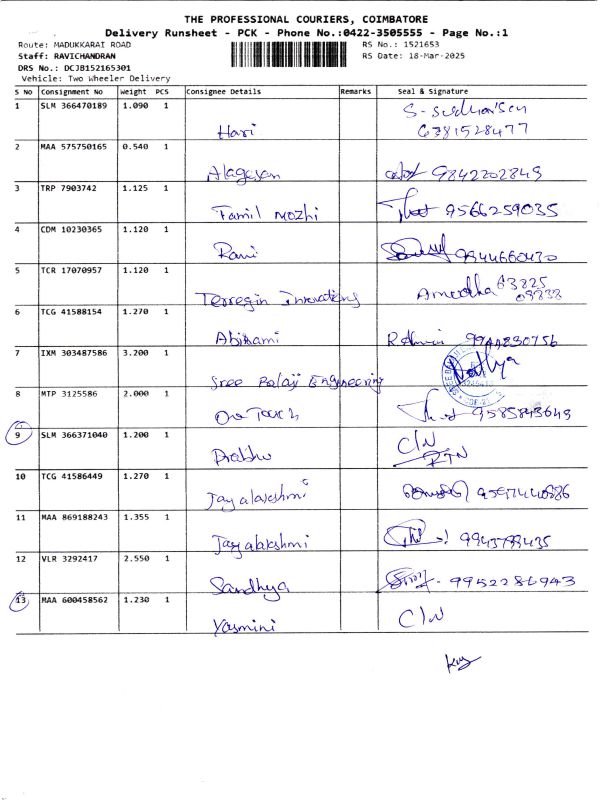 THE PROFESSIONAL COURIERS, COIMBATORE
Delivery Runsheet - PCK - Phone No.:0422-3505555 - Page No.:1
Route: MADUKKARAI ROAD RS No.: 1521653
Staff: RAVICHANDRAN RS Date: 18-Mar-2025
DRS No.: DCJB152165301
Vehicle: Two Wheeler Delivery
S No Consignment No Weight PCS Consignee Details Remarks Seal & Signature
1 SLM 366470189 1.090 1 Hari 6381528477
2 MAA 575750165 0.540 1 Alagesan 9842202849
3 TRP 7903742 1.125 1 Tamil Mozhi 9566259035
4 CDM 10230365 1.120 1 Rani 9944660430
5 TCR 17070957 1.120 1 Amerdha 63825
08838
6 TCG 41588154 1.270 1 Abirami 9944230756
7 IXM 303487586 3.200 1 Sree Balaji Engineering
8 MTP 3125586 2.000 1 One Touch 9585843649
9 SLM 366371040 1.200 1 Prabhu C/N
RTN
10 TCG 41586449 1.270 1 Jayalakshmi 9597440886
11 MAA 869188243 1.355 1 Jayalakshmi 9943799435
12 VLR 3292417 2.550 1 Sandhya 9952286943
13 MAA 600458562 1.230 1 Yasmini C/N